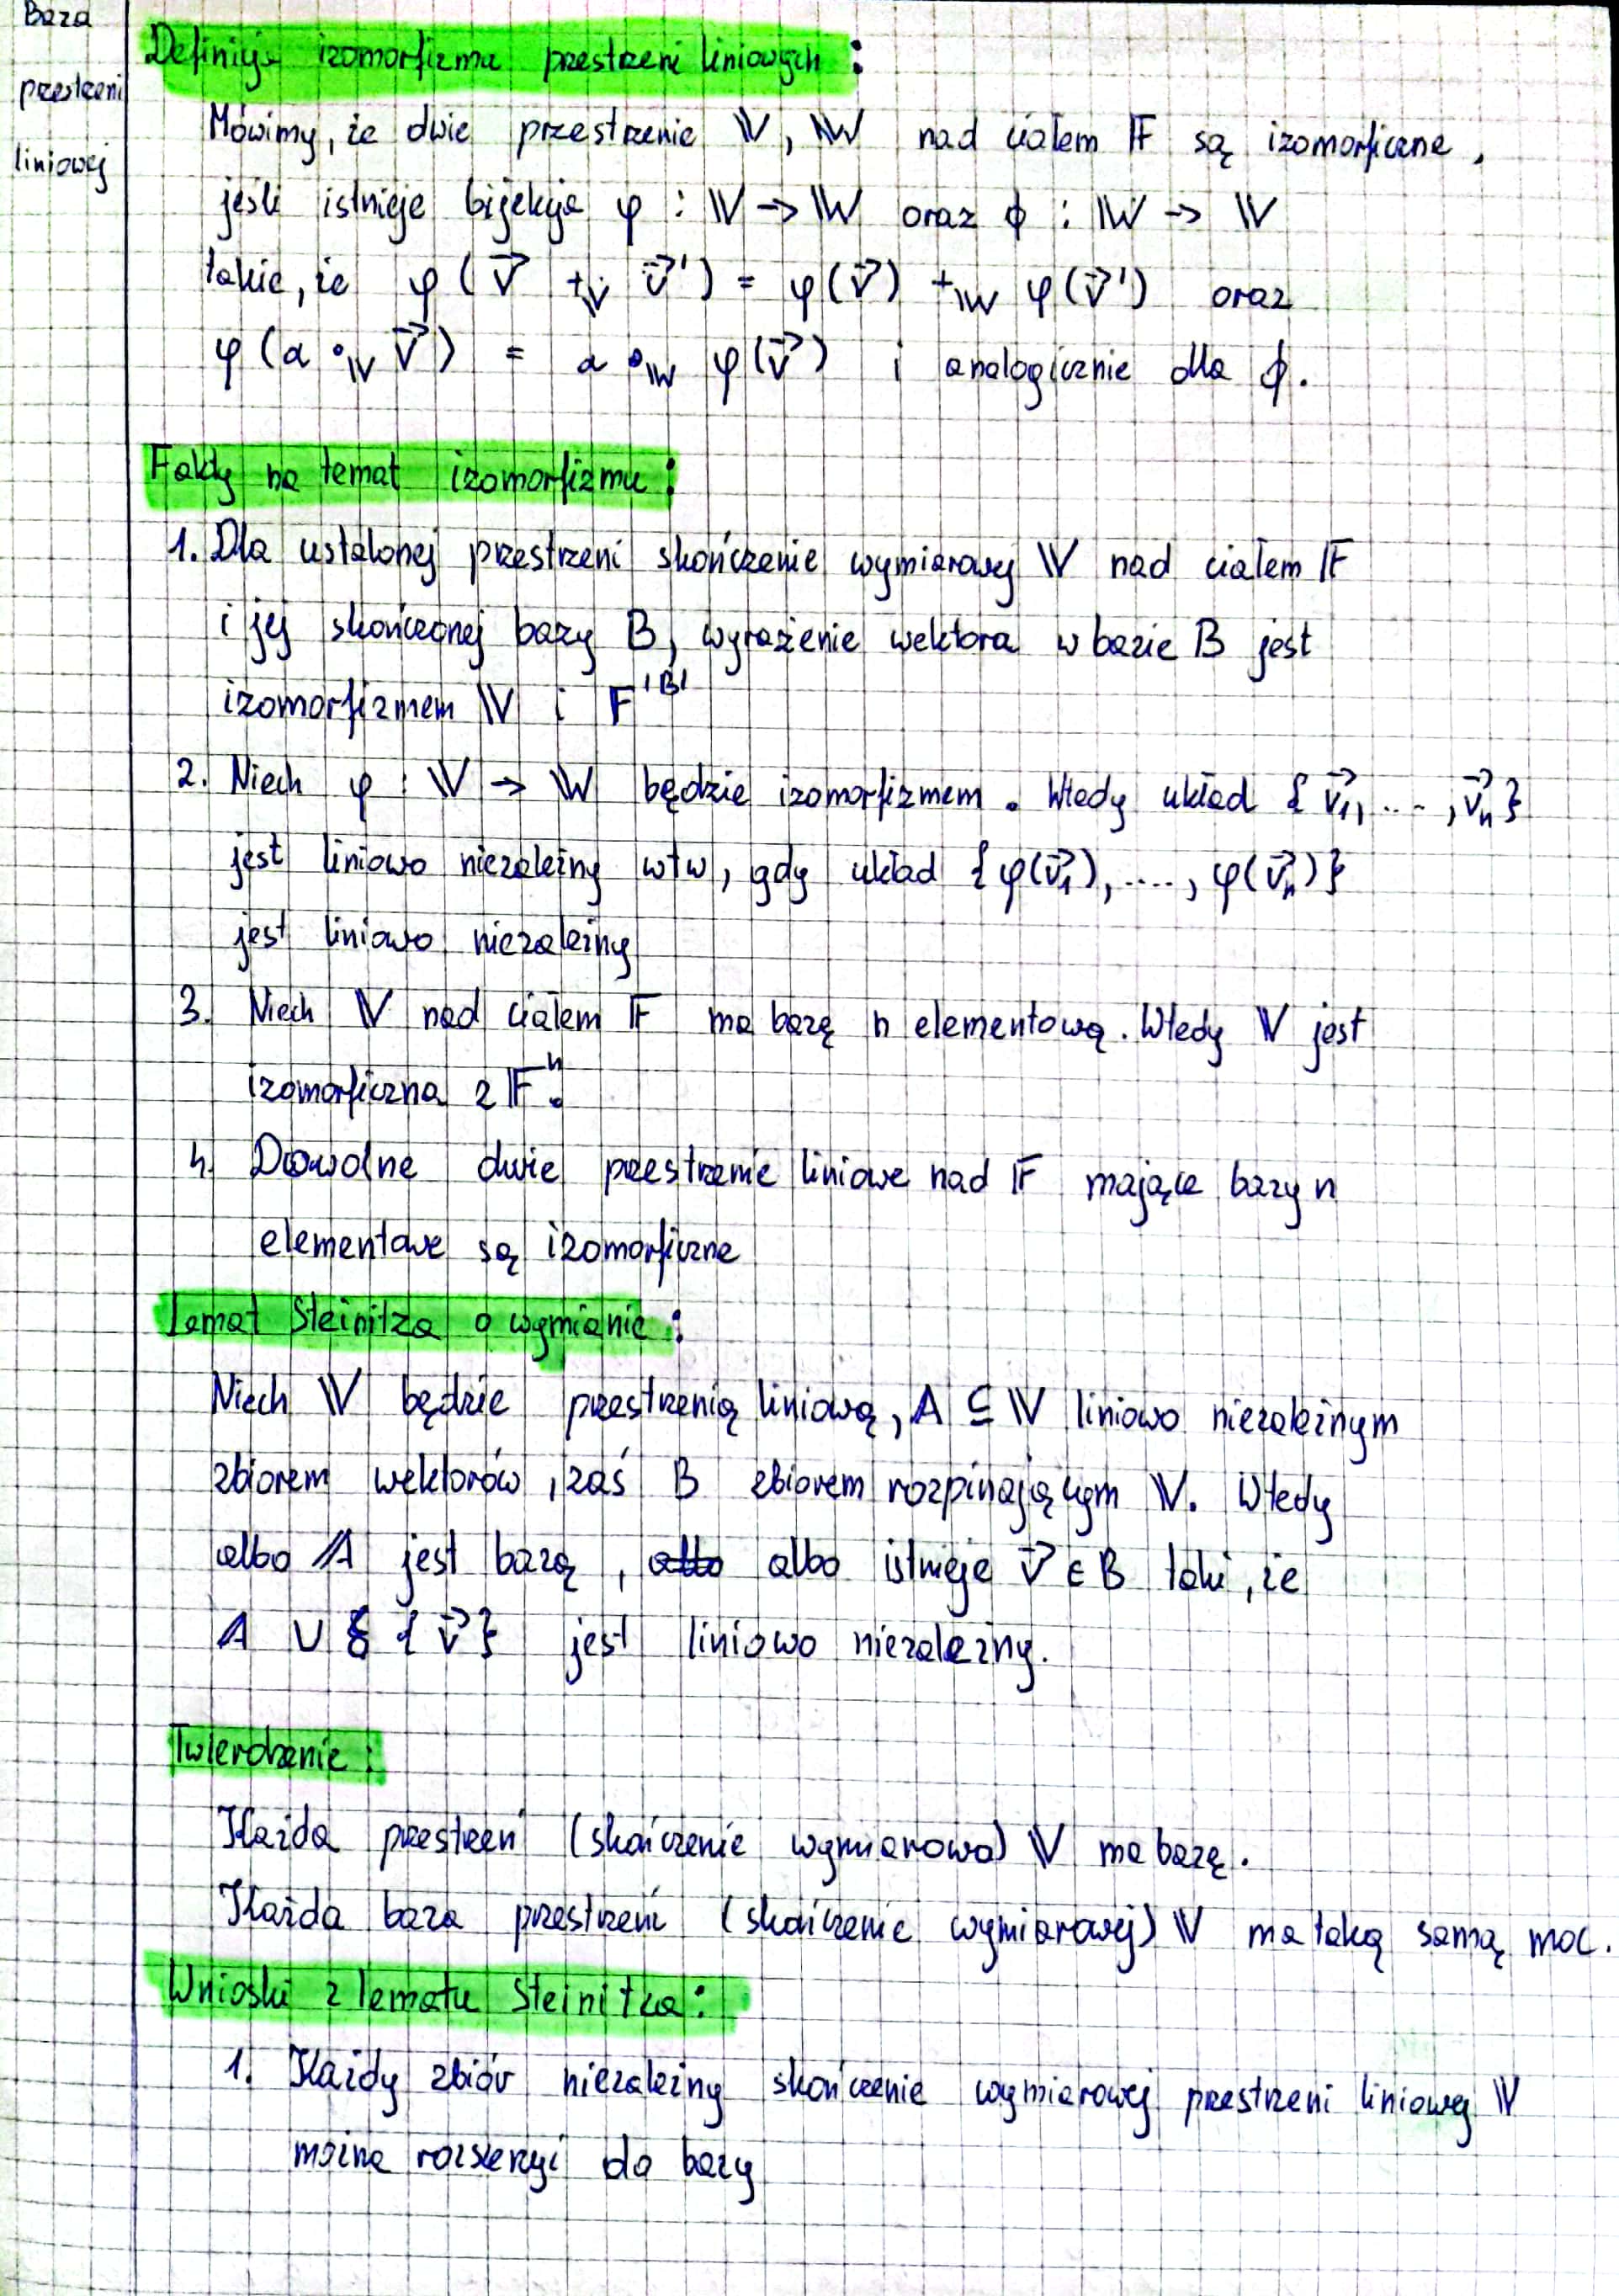 Baza
przestrzeni
liniowej
Definicja izomorfizma przestrzeni liniowych :
Mówimy, że dwie przestrzenie 𝕍, 𝕎 nad ciałem 𝔽 są izomorficzne,
jeśli istnieje bijekcja φ : 𝕍 → 𝕎 oraz ϕ : 𝕎 → 𝕍
takie, że φ(v⃗ +𝕍 v⃗') = φ(v⃗) +𝕎 φ(v⃗') oraz
φ(α •𝕍 v⃗) = α •𝕎 φ(v⃗) i analogicznie dla ϕ.
Fakty na temat izomorfizmu :
1. Dla ustalonej przestrzeni skończenie wymiarowej 𝕍 nad ciałem 𝔽
i jej skończonej bazy B, wyrażenie wektora w bazie B jest
izomorfizmem 𝕍 i 𝔽^|B|
2. Niech φ : 𝕍 → 𝕎 będzie izomorfizmem. Wtedy układ {v⃗₁, ..., v⃗ₙ}
jest liniowo niezależny wtw, gdy układ {φ(v⃗₁), ...., φ(v⃗ₙ)}
jest liniowo niezależny
3. Niech 𝕍 nad ciałem 𝔽 ma bazę n elementową. Wtedy 𝕍 jest
izomorficzna z 𝔽ⁿ.
4. Dowolne dwie przestrzenie liniowe nad 𝔽 mające bazy n
elementowe są izomorficzne
Lemat Steinitza o wymianie :
Niech 𝕍 będzie przestrzenią liniową, A ⊆ 𝕍 liniowo niezależnym
zbiorem wektorów, zaś B zbiorem rozpinającym 𝕍. Wtedy
albo A jest bazą, albo albo istnieje v⃗ ∈ B taki, że
A ∪ {v⃗} jest liniowo niezależny.
Twierdzenie :
Każda przestrzeń (skończenie wymiarowa) 𝕍 ma bazę.
Każda baza przestrzeni (skończenie wymiarowej) 𝕍 ma taką samą moc.
Wnioski z lematu Steinitza :
1. Każdy zbiór niezależny skończenie wymiarowej przestrzeni liniowej 𝕍
można rozszerzyć do bazy